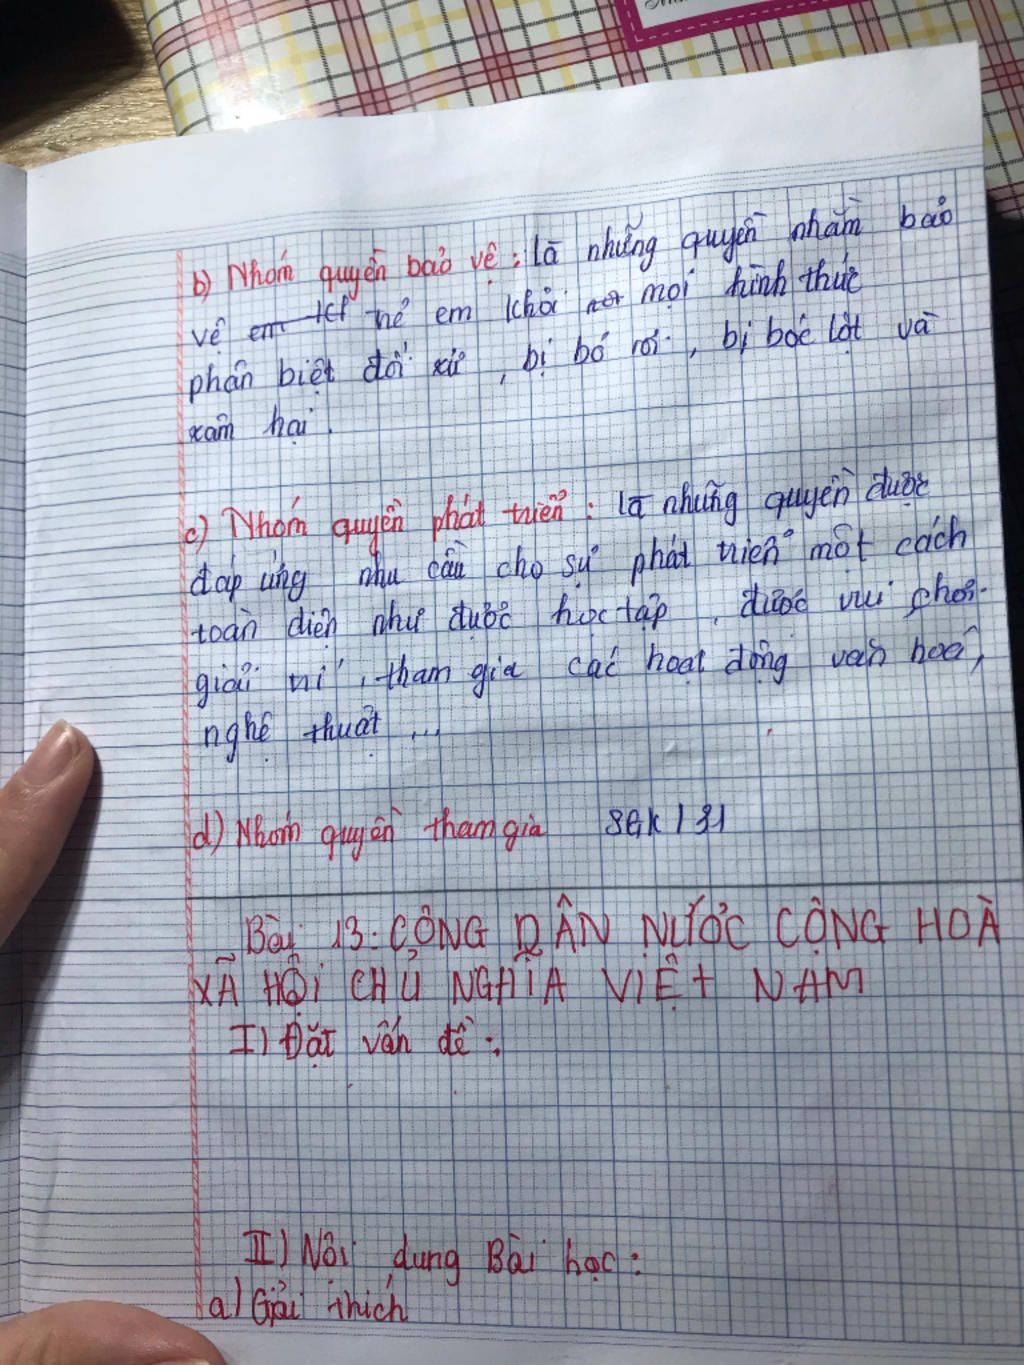 b) Nhóm quyền bảo vệ : là những quyền nhằm bảo
vệ em khỏi mọi hình thức
phân biệt đối xử , bị bỏ rơi , bị bóc lột và
xâm hại .
c) Nhóm quyền phát triển : là những quyền được
đáp ứng nhu cầu cho sự phát triển một cách
toàn diện như được học tập , được vui chơi
giải trí , tham gia các hoạt động văn hoá ,
nghệ thuật ...
d) Nhóm quyền tham gia SGK / 31
Bài 13 : CÔNG DÂN NƯỚC CỘNG HOÀ
XÃ HỘI CHỦ NGHĨA VIỆT NAM
I) Đặt vấn đề :
II) Nội dung Bài học :
a) Giải thích